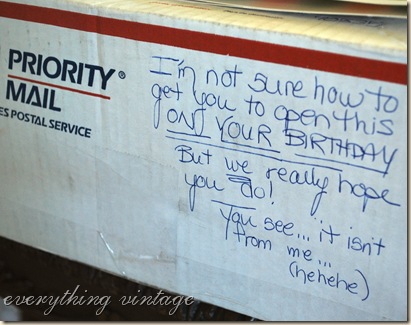 PRIORITY®
MAIL
ES POSTAL SERVICE
I'm not sure how to
get you to open this
ON YOUR BIRTHDAY
But we really hope
you do!
You see... it isn't
from me...
(hehehe)
everything vintage